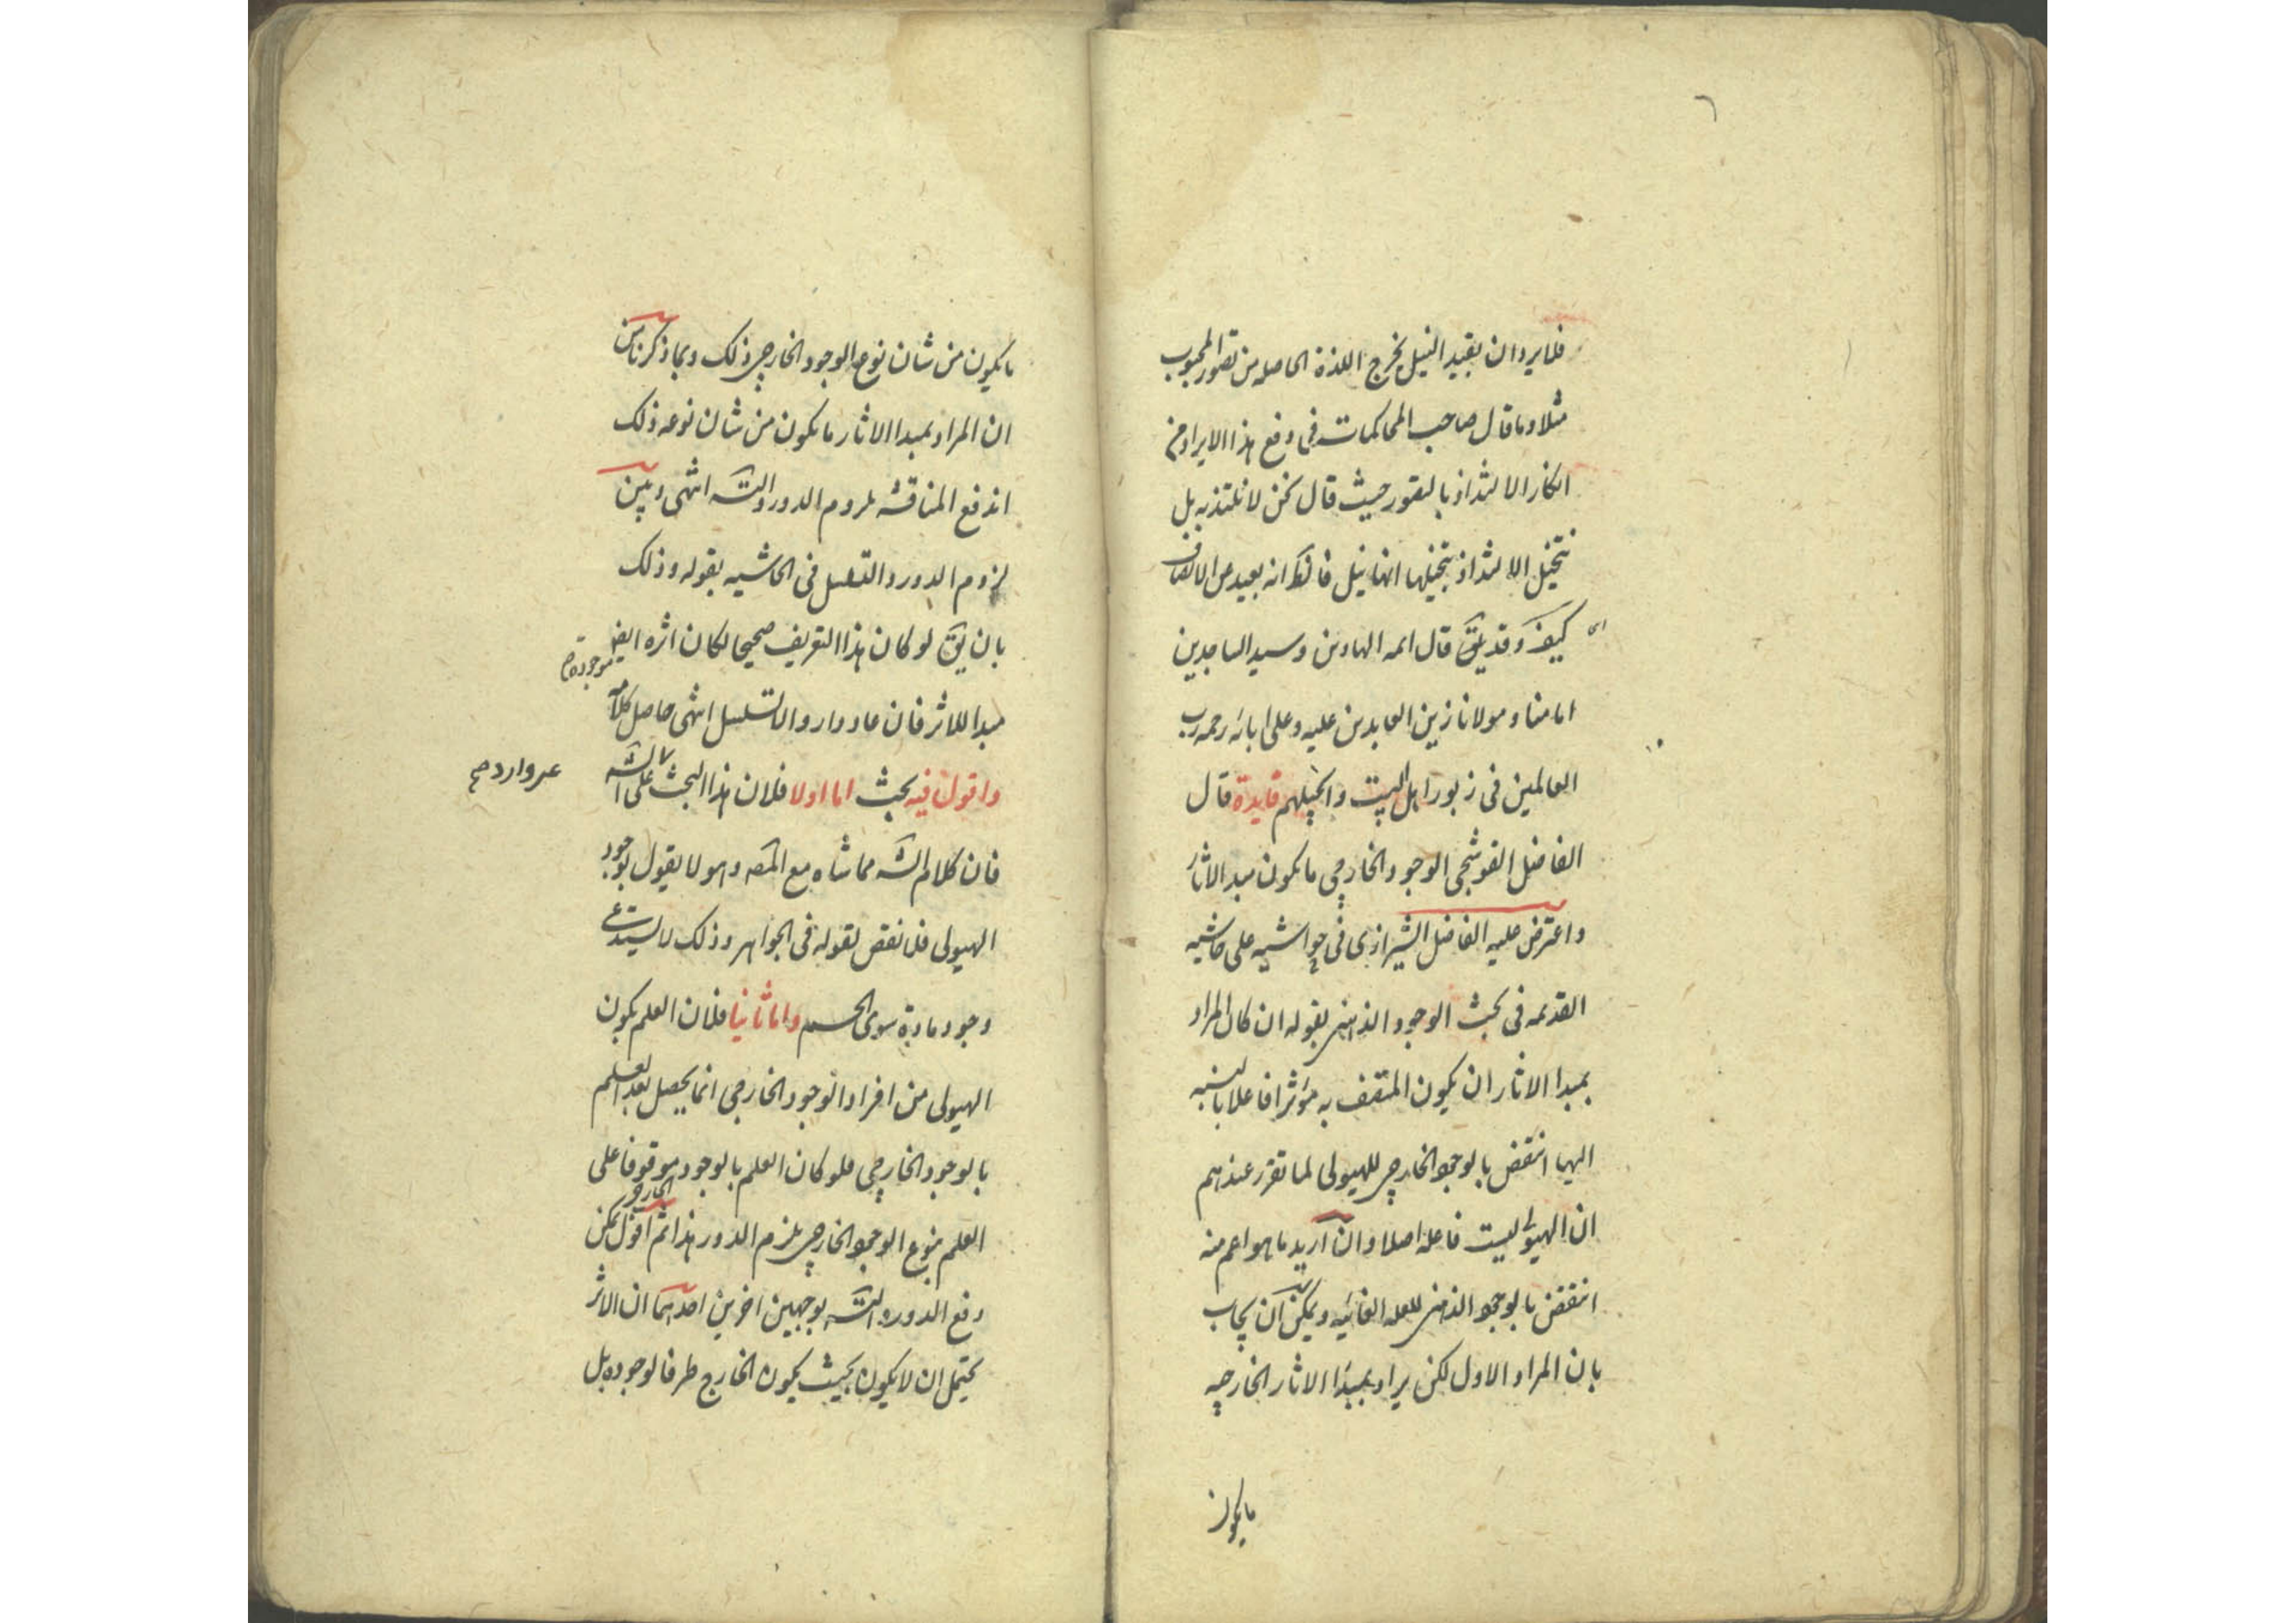 ٦
فلا يرد ان بقيد النيل يخرج اللذة الحاصله من تصور المحبوب
مثلا وما قال صاحب المحاكمات فى دفع هذا الايراد من
انكار الالتذاذ بالتصور حيث قال نحن لا نلتذ به بل
نتخيل الالتذاذ بتخيلها انها نيل فالظ انه بعيد عن الانصاف
كيف وقد يلتذ قال ائمه الهادين وسيد الساجدين
امامنا ومولانا زين العابدين عليه وعلى ابائه رحمه رب
العالمين فى زبور اهل البيت وانجيلهم فايدة قال
الفاضل القوشجى الوجود الخارجى ما يكون مبدا الاثار
واعترض عليه الفاضل الشيرازى فى حواشيه على حاشيه
القديمه فى بحث الوجود الذهنى بقوله ان كان المراد
بمبدا الاثار ان يكون المتصف به مؤثرا فاعلا بالنسبه
اليها انتقض بالوجود الخارجى للهيولى لما تقرر عندهم
ان الهيولى ليست فاعله اصلا وان اريد ما هو اعم منه
انتقض بالوجود الذهنى للعله الغائيه ويمكن ان يجاب
بان المراد الاول لكن يراد بمبدا الاثار الخارجيه
ما يكون
ما يكون من شان نوع الوجود الخارجى ذلك وبما ذكرنا من
ان المراد بمبدا الاثار ما يكون من شان نوعه ذلك
اندفع المناقشه بلزوم الدور والتسه انتهى وبين
لزوم الدور والتسلسل فى الحاشيه بقوله وذلك
بان يق لو كان هذا التعريف صحيحا لكان اثره ايضا
موجودة
مبدا للاثر فان عاد دار والا تسلسل انتهى حاصل كلامه
واقول فيه بحث اما اولا فلان هذا البحث على الشه
غير وارد صح
فان كلام الشه مماشاه مع المصه وهو لا يقول بوجود
الهيولى فلا نقض لقوله فى الجواهر وذلك لا يستدعى
وجود مادة سوى الجسم واما ثانيا فلان العلم بكون
الهيولى من افراد الوجود الخارجى انما يحصل بعد العلم
بالوجود الخارجى فلو كان العلم بالوجود الخارجى موقوفا على
العلم بنوع الوجود الخارجى يلزم الدور هذا ثم اقول يمكن
دفع الدور والتسه بوجهين اخرين احدهما ان الاثر
يحتمل ان لا يكون بحيث يكون الخارج ظرفا لوجوده بل